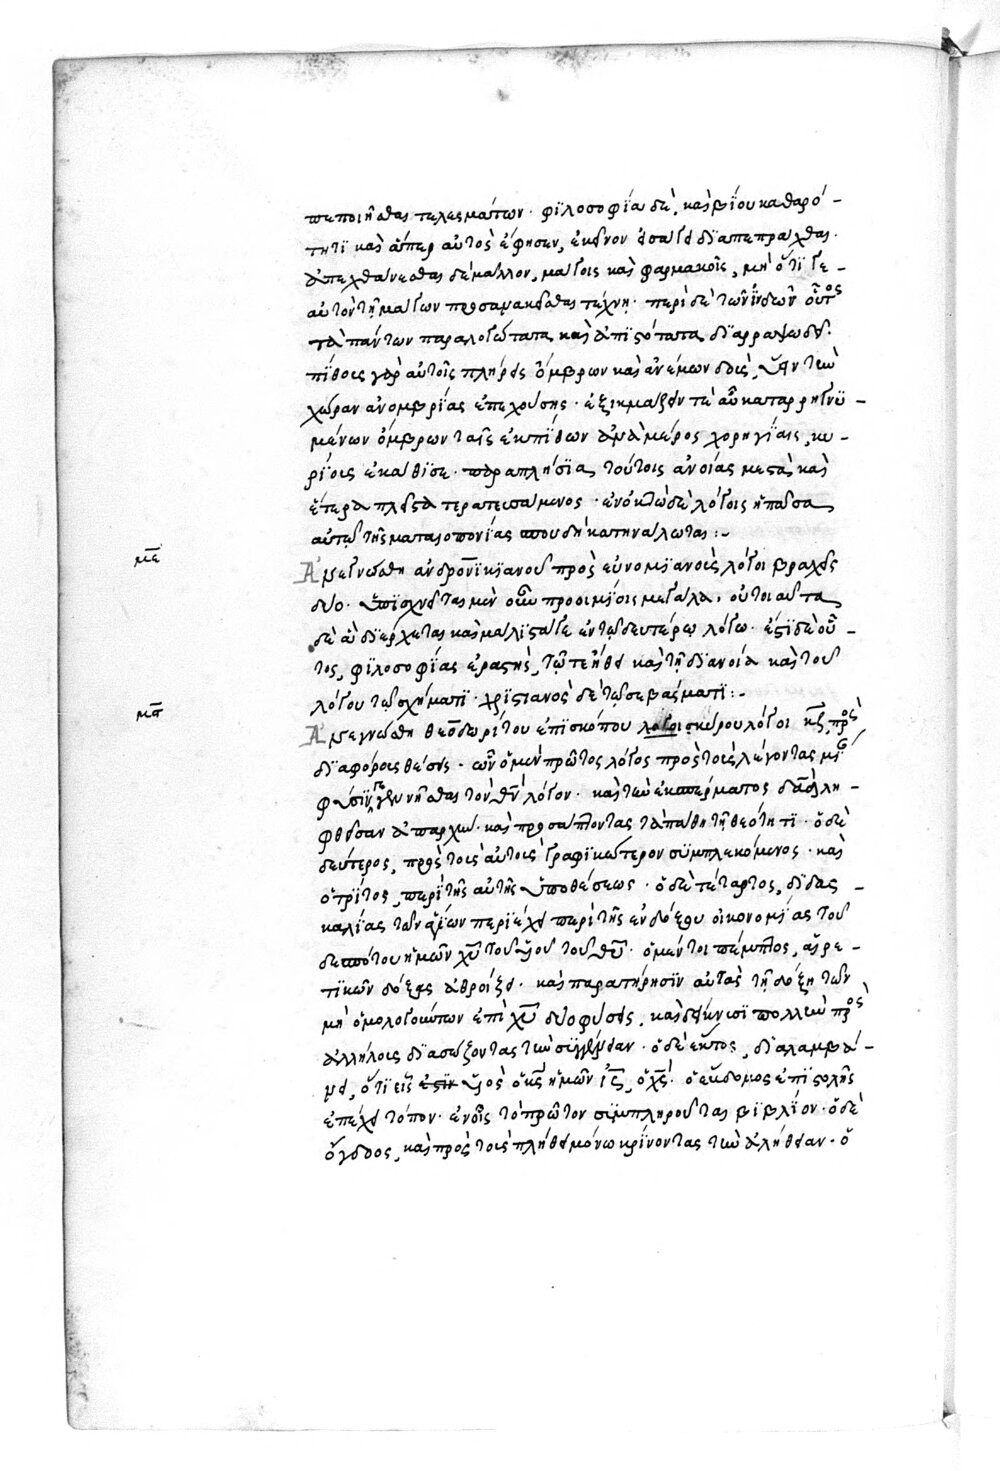 πεποιῆσθαι τελεσμάτων· φιλοσοφία δὲ, καὶ βίου καθαρό-
τητι καὶ ἅπερ αὐτὸς ἔφησεν, ἐκεῖνον ὅσα γε διαπεπράχθαι.
ἀπεχθάνεσθαι δὲ μᾶλλον, μάγοις καὶ φαρμακοῖς, μὴ ὅτι γε
αὐτὸν τῇ μάγων προσανακεῖσθαι τέχνῃ· περὶ δὲ τῶν ἰνδῶν οὗτος
τὰ πάντων παραλογώτατα καὶ ἀπιστότατα διαρραψωδεῖ·
πίθοις γὰρ αὐτοῖς πλήρεις ὄμβρων καὶ ἀνέμων δοὺς, ὕειν τὲ τὴν
χώραν ἀνομβρίας ἐπεχούσης· ἐξικμάζειν τὲ αὖ καταρρηγνυ-
μένων ὄμβρων ταῖς ἐκ πίθων ἀνὰ μέρος χορηγίαις, κυ-
ρίοις ἐκάθισε· παραπλήσια τούτοις ἀνοίας μεστὰ καὶ
ἕτερα πλεῖστα τερατευσάμενος· ἐν ὀκτὼ δὲ λόγοις ἡ πᾶσα
αὐτῷ τῆς ματαιοπονίας σπουδὴ κατηνάλωται:-
με
Ἀνεγνώσθη ἀνδρονικιανοῦ πρὸς εὐνομιανοὺς λόγοι βραχεῖς
δύο· ὑπισχνεῖται μὲν οὖν προοιμίοις μεγάλα, οὔτοι αὐτὰ
δὲ ἃ διέρχεται καὶ μάλιστά γε ἐν τῷ δευτέρῳ λόγω· ἔστι δὲ οὗ-
τος, φιλοσοφίας ἐραστὴς, τῷ τε ἤθει καὶ τῇ διανοίᾳ καὶ τοῦ
λόγου τῷ σχήματι· χριστιανὸς δὲ τῷ σεβάσματι:-
μς
Ἀνεγνώσθη θεοδωρίτου ἐπισκόπου λόγοι κύρου λόγοι κζ πρὸς
διαφόρους θέσεις· ὧν ὁ μὲν πρῶτος λόγος πρὸς τοὺς λέγοντας μίαν
φύσιν, γεγεννῆσθαι τὸν θν λόγον· καὶ τὴν ἐκ σπέρματος δαδ λη-
φθεῖσαν ἀπαρχὴν· καὶ προσάπτοντας τὰ πάθη τῇ θεότητι· ὁ δὲ
δεύτερος, πρὸς τοὺς αὐτοὺς γραφικώτερον συμπλεκόμενος· καὶ
ὁ τρίτος, περὶ τῆς αὐτῆς ὑποθέσεως· ὁ δὲ τέταρτος, διδασ-
καλίας τῶν ἁγίων περιέχει περὶ τῆς ἐνδόξου οἰκονομίας τοῦ
δεσπότου ἡμῶν χυ τοῦ υἱοῦ τοῦ θυ· ὁ μέντοι πέμπτος, αἱρε-
τικῶν δόξας ἀθροίζει· καὶ παρατήρησιν αὐτὰς τῇ δόξῃ τῶν
μὴ ὁμολογούντων ἐπὶ χυ δύο φύσεις, καὶ δείκνυσι πολλὴν πρὸς
ἀλλήλους διασώζοντας τὴν συγγένειαν· ὁ δὲ ἕκτος, διαλαμβά-
νει, ὅτι εἷς ἐστιν υἱὸς ὁ κς ἡμῶν ις, ὁ χς· ὁ ἕβδομος ἐπιστολῆς
ἐπέχει τόπον· ἐν οἷς τὸ πρῶτον συμπληροῦται βιβλίον· ὁ δὲ
ὄγδοος, καὶ πρὸς τοὺς πλήθει μόνω κρίνοντας τὴν ἀλήθειαν· ὁ